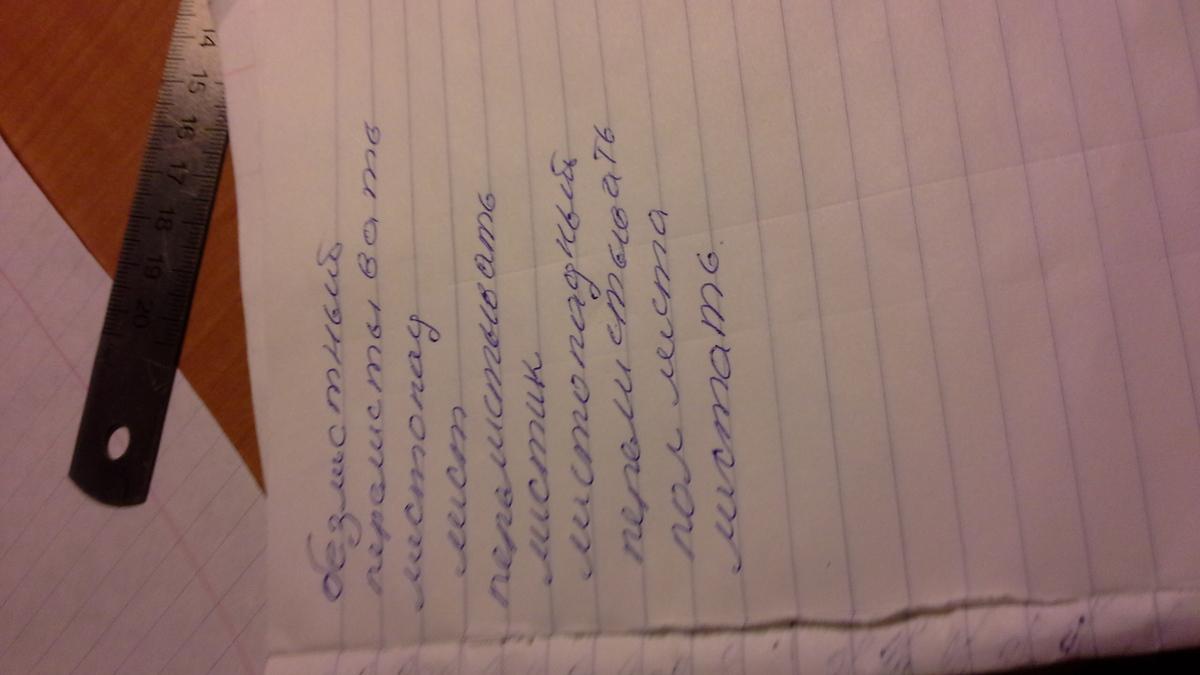 безлистный
перелистывать
листопад
лист
перелистывать
листик
листопадный
перелистывать
пол листа
листать.
14 15 16 17 18 19 20